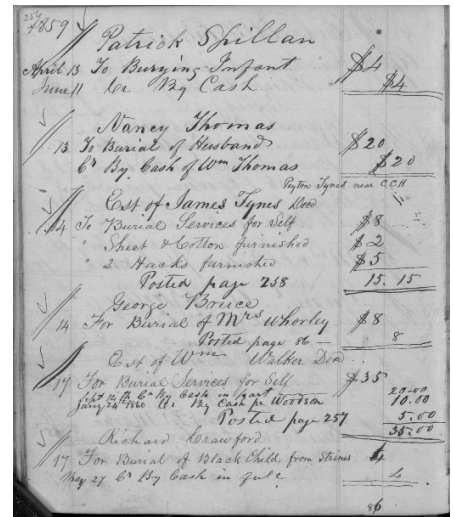 256
1859
Patrick Spillan
April 13 To Burying Infant $4
June 11 Cr By Cash $4
Nancy Thomas
13 To Burial of Husband $20
Cr By Cash of Wm Thomas $20
Peyton Tynes near C.C.H
Est of James Tynes Decd
14 To Burial Services for Self $8
" Sheet & Cotton furnished $2
" 2 Hacks furnished $5
Posted page 258 15. 15
George Bruce
14 For Burial of Mrs Whorley $8
Posted page 86 — 8
Est of Wm Walker Decd
17 For Burial Services for Self $35
Sept 12th Cr By Cash in part 20.00
Jany 24th 1860 Cr By Cash pr Woodson 10.00
Posted page 257 5.00
35.00
Richard Crawford
17 For Burial of Black Child from Strines 4
May 27 Cr By Cash in full 4
86